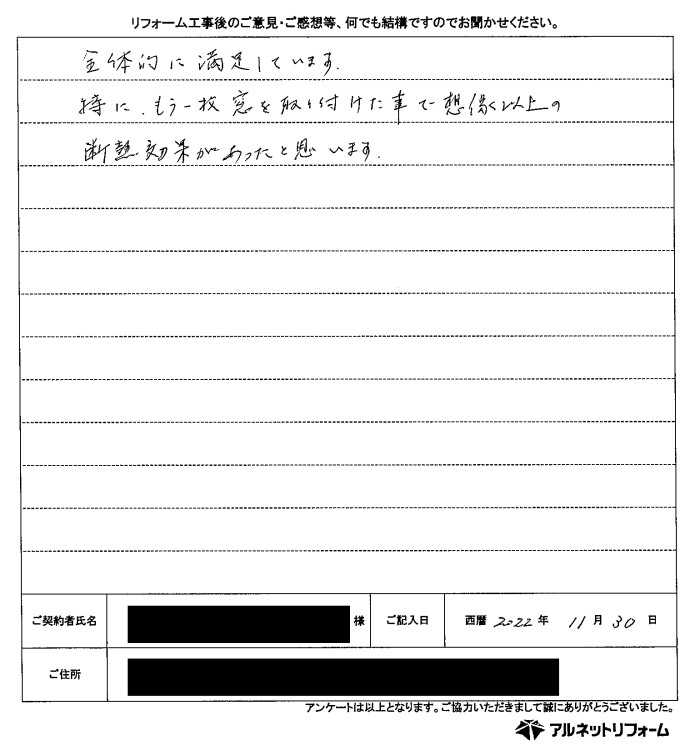 リフォーム工事後のご意見・ご感想等、何でも結構ですのでお聞かせください。
全体的に満足しています.
特に、もう一枚窓を取り付けた事で想像以上の
断熱効果があったと思います.
ご契約者氏名 様 ご記入日 西暦 2022 年 11 月 30 日
ご住所
アンケートは以上となります。ご協力いただきまして誠にありがとうございました。
アルネットリフォーム